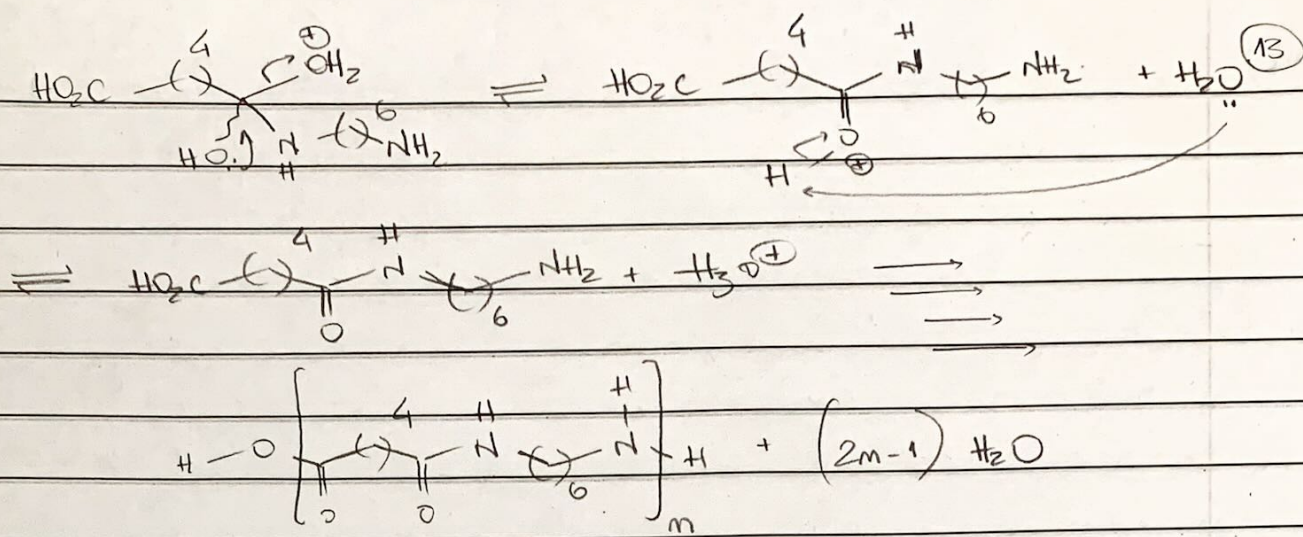 HO₂C –( )₄ ⊕OH₂ HO: N H ( )₆ NH₂ ⇌ HO₂C –( )₄ O H ⊕ N H ( )₆ NH₂ + H₂O 13
⇌ HO₂C –( )₄ O N H ( )₆ NH₂ + H₃O⊕ → → → →
H – O [ O ( )₄ O N H ( )₆ N H ]n H + (2n-1) H₂O